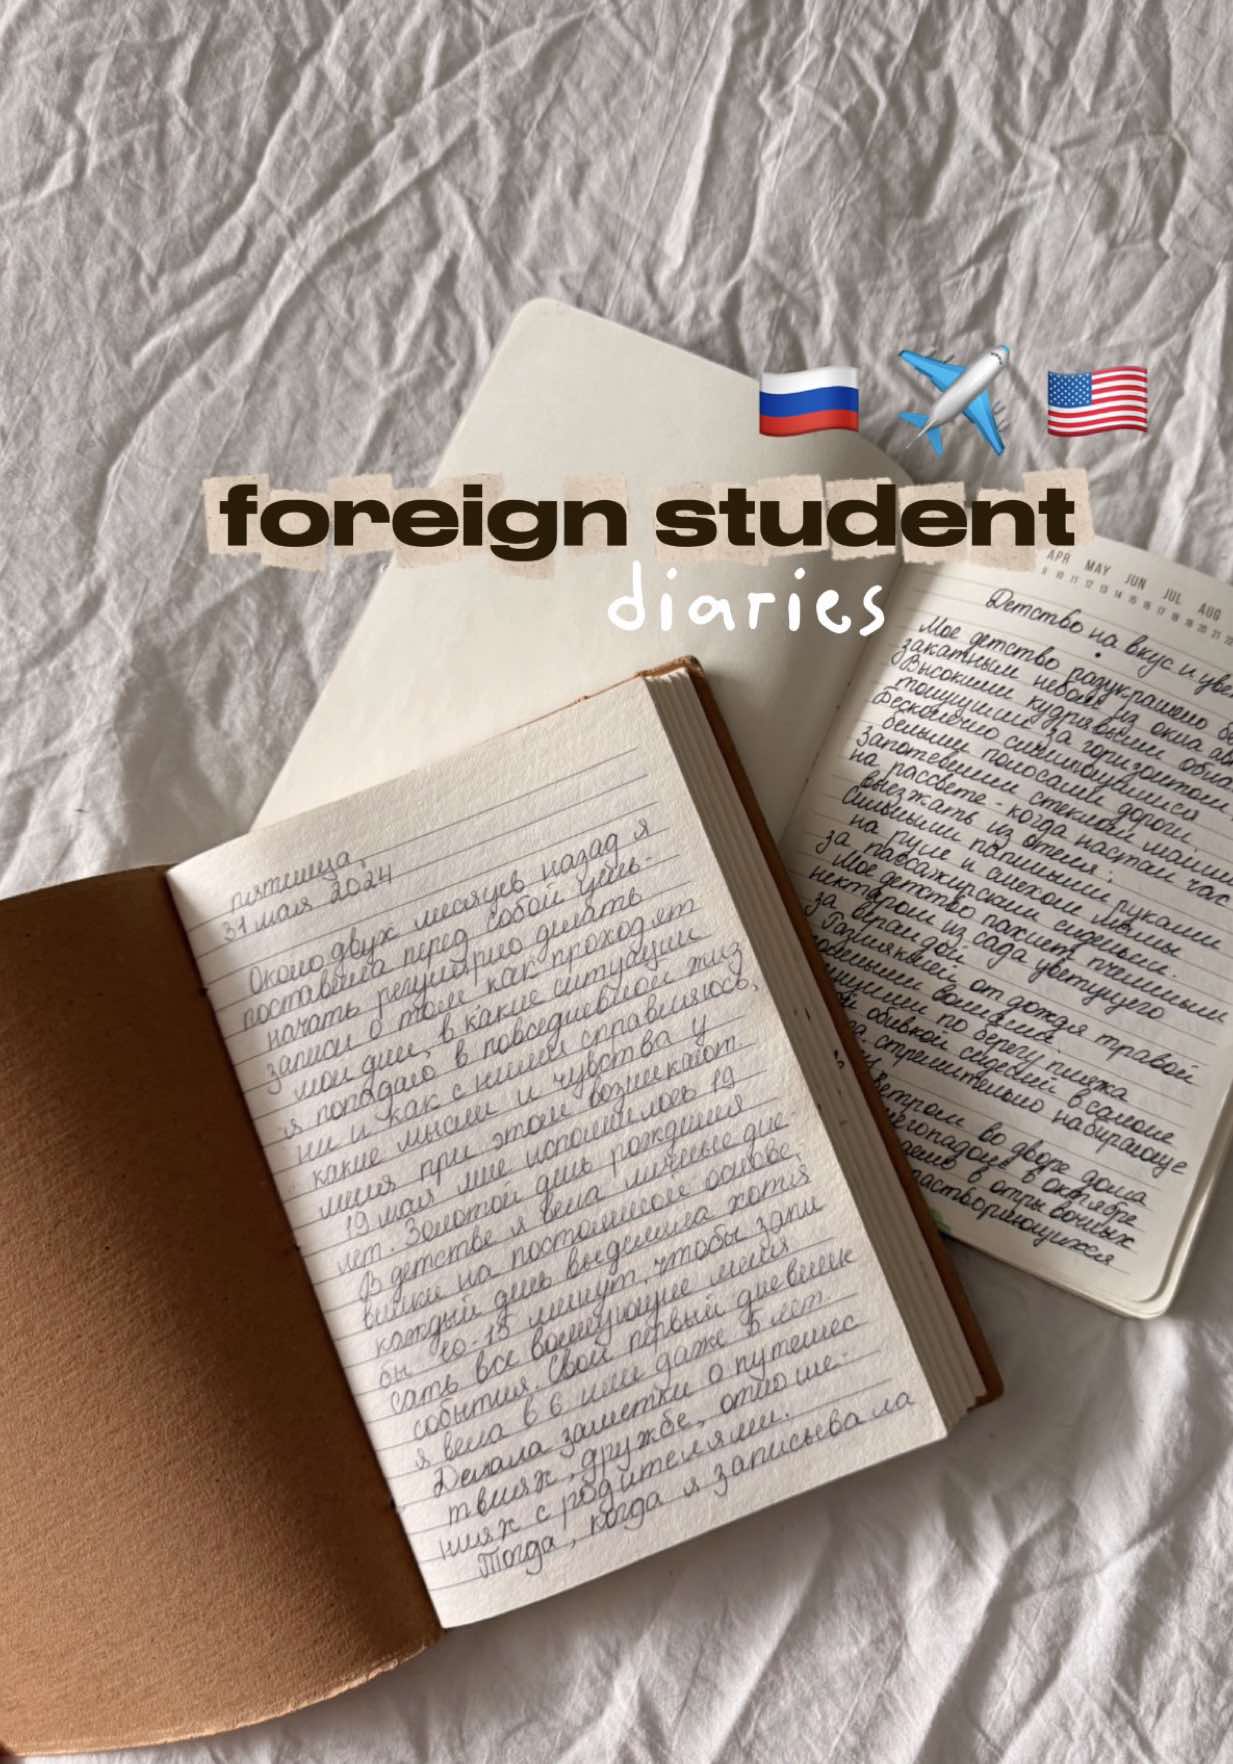 foreign student
diaries
APR MAY JUN JUL AUG
Детство на вкус и
Мое детство разукрашено
закатным небом из окна
Высокими кудрявыми
тонущими за горизонтом
Бесконечно
белыми полосами дороги.
запотевшим стеклом
на рассвете - когда настал час
выезжать из отеля;
Сильными папиными руками
на руле и смехом мамы
за пассажирским сиденьем.
Мое детство пахнет пчелиным
нектаром из сада цветущего
за верандой
Размякшей от дождя травой
по берегу пляжа
обивкой сидений в салоне
стремительно набирающе
ветром во дворе дома
в октябре
в
растворяющихся
пятница,
31 мая 2024
Около двух месяцев назад я
поставила перед собой цель-
начать регулярно делать
записи о том как проходят
мои дни, в какие ситуации
я попадаю в повседневной жиз
ни и как с ними справляюсь,
какие мысли и чувства у
меня при этом возникают.
19 мая мне исполнилось 19
лет. Золотой день рождения
В детстве я вела личные дне-
вники на постоянной основе,
каждый день выделяла хотя
бы 10-15 минут, чтобы запи
сать все волнующие меня
события. Свой первый дневник
я вела в 6 или даже 5 лет.
Делала заметки о путешес
твиях, дружбе, отноше-
ниях с родителями.
Тогда, когда я записывала